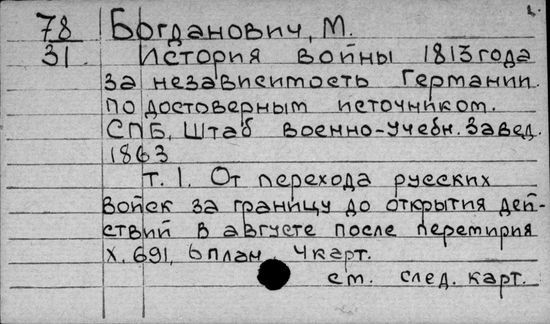 78 Богданович, М.
31. История войны 1813 года
за независимость Германии.
по достоверным источником.
СПБ, Штаб военно-учебн. завед.
1863
т. 1. От перехода русских
войск за границу до открытия дей-
ствий в августе после перемирия
X. 691, 6 план, 4 карт.
см. след. карт.